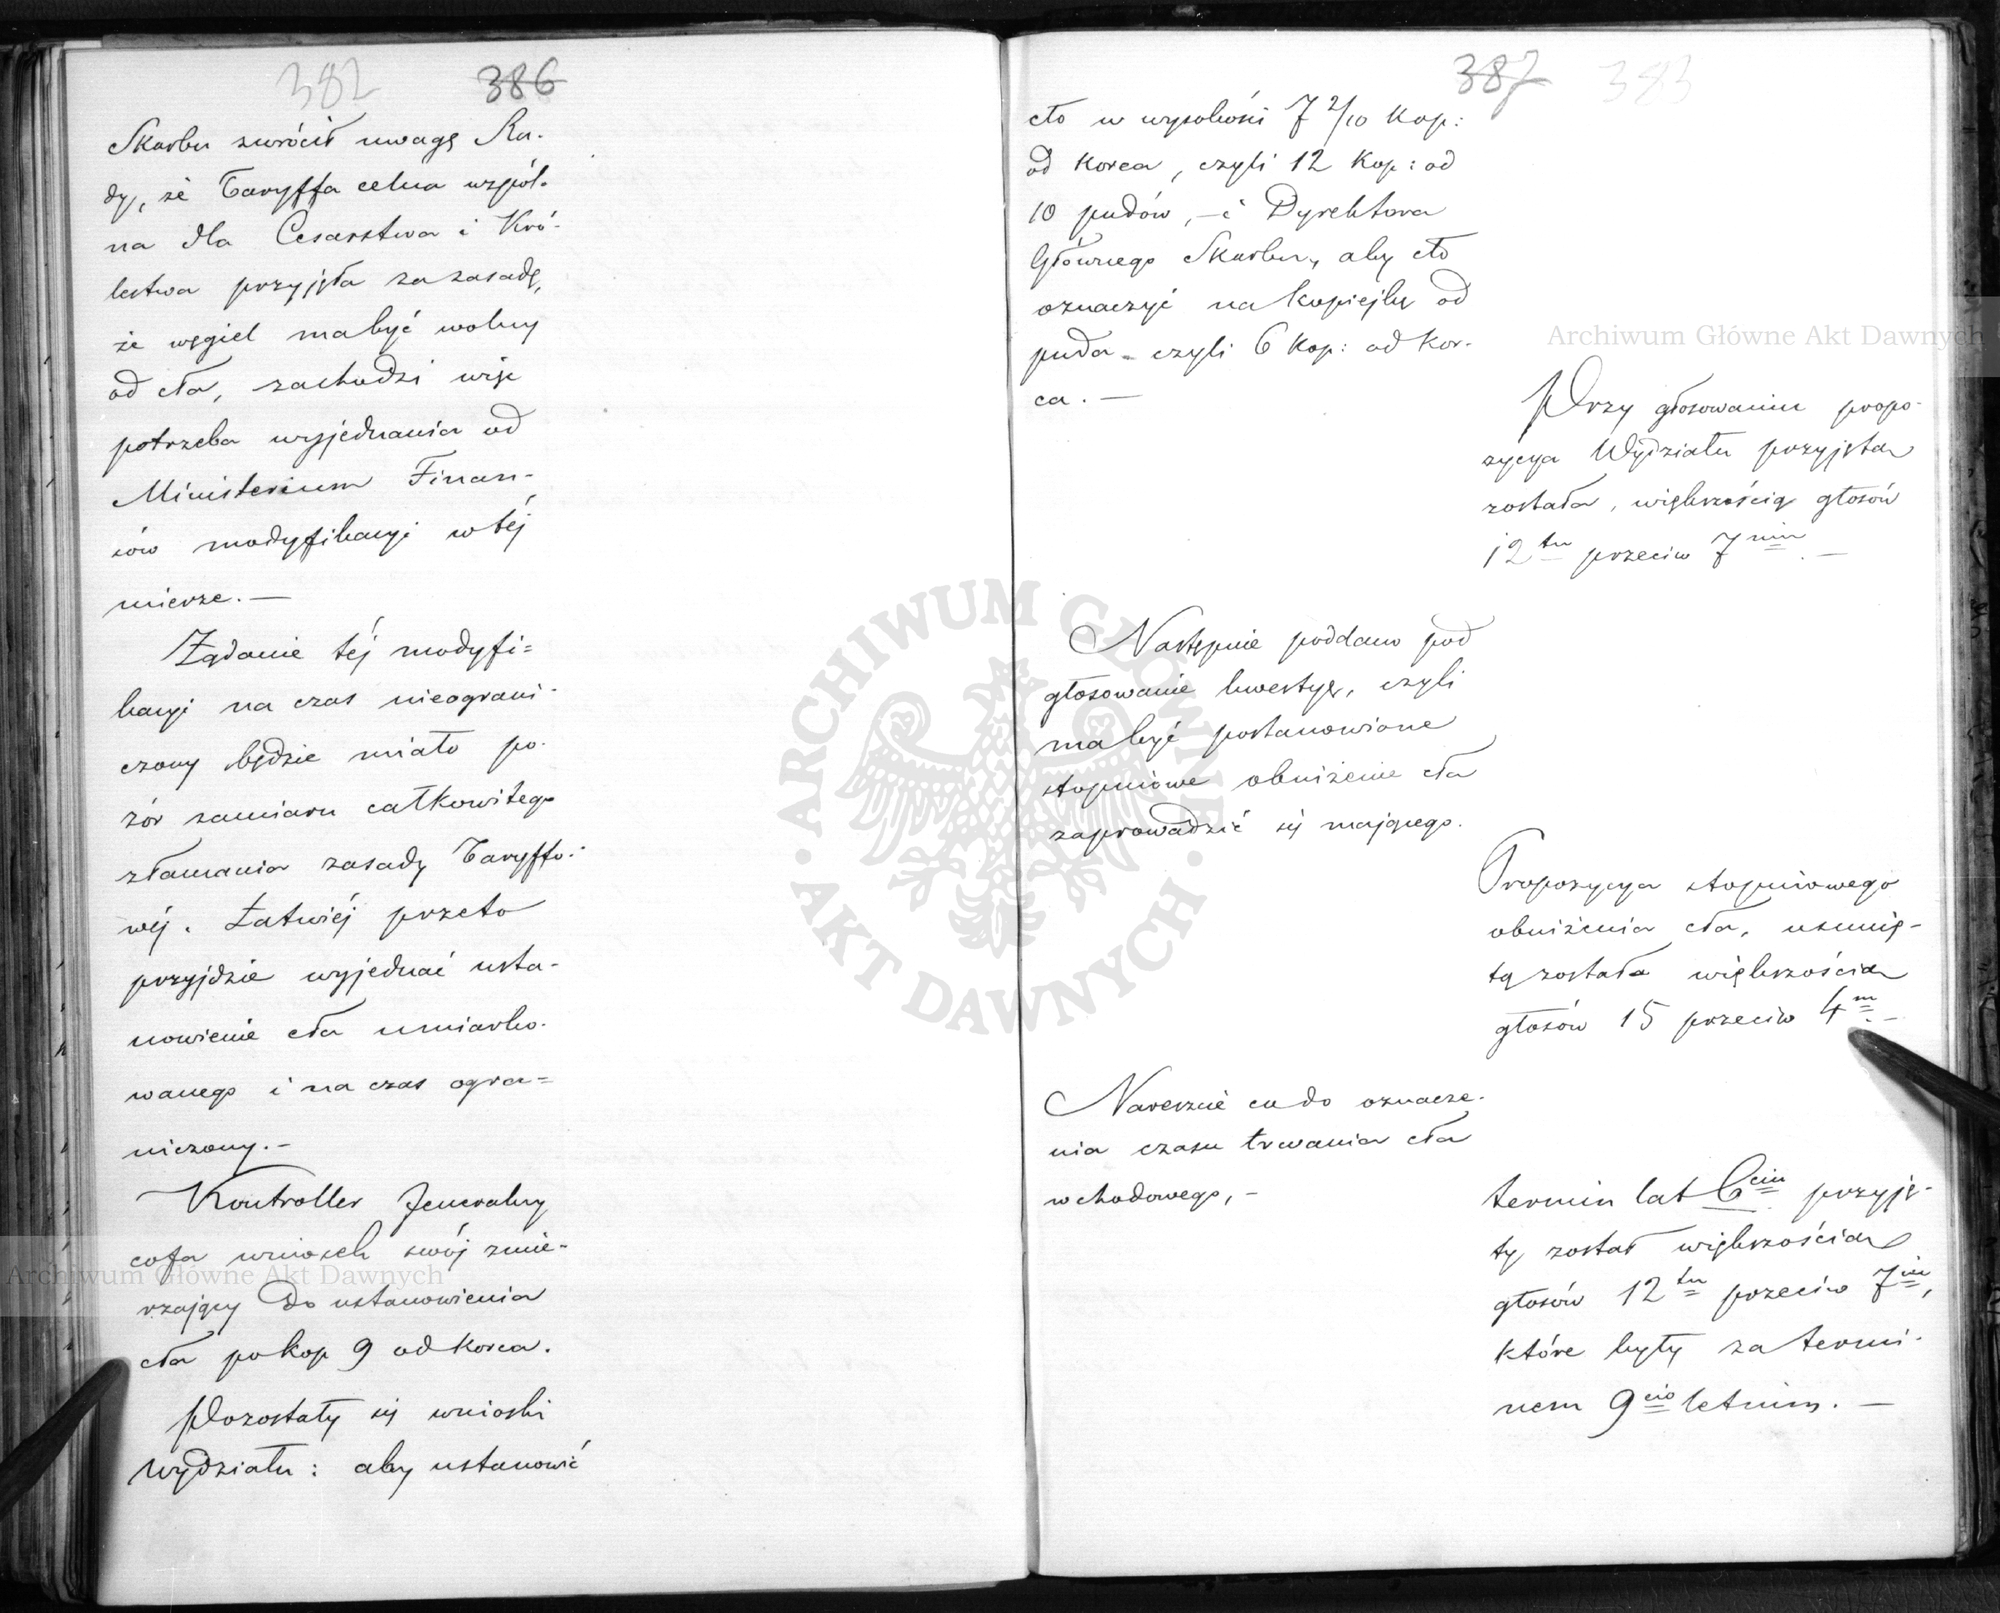 382 386
Skarbu zwrócił uwagę Ra-
dy, że Taryffa celna wspól-
na dla Cesarstwa i Kró-
lestwa przyjęła za zasadę,
że węgiel ma być wolny
od cła, zachodzi więc
potrzeba wyjednania od
Ministerium Finan-
sów modyfikacyi w téj
mierze. —
Żądanie téj modyfi=
kacyi na czas nieograni-
czony będzie miało po-
zór zamiaru całkowitego
złamania zasady Taryffo-
wéj. Łatwiéj przeto
przyjdzie wyjednać usta-
nowienie cła umiarko-
wanego i na czas ogra=
niczony. —
Kontroller Jeneralny
cofa wniosek swój zmie-
rzający do ustanowienia
cła po kop 9 od korca.
Pozostały się wnioski
Wydziału: aby ustanowić
387 383
cło w wysokości 7 2/10 kop:
od korca, czyli 12 kop: od
10 pudów, — i Dyrektora
Głównego Skarbu, aby cło
oznaczyć na kopiejkę od
puda — czyli 6 kop: od kor-
ca. —
Przy głosowaniu propo-
zycya Wydziału przyjęta
została, większością głosów
12tu przeciw 7miu. —
Następnie poddano pod
głosowanie kwestyę, czyli
ma być postanowione
stopniowe obniżenie cła
zaprowadzić się mającego.
Propozycya stopniowego
obniżenia cła, usunię-
tą została większością
głosów 15 przeciw 4m. —
Nareszcie co do oznacze-
nia czasu trwania cła
wchodowego, —
termin lat 6ciu przyję-
ty został większością
głosów 12tu przeciw 7miu,
które były za termi-
nem 9cio letnim. —
Archiwum Główne Akt Dawnych
Archiwum Główne Akt Dawnych
ARCHIWUM GŁÓWNE • AKT DAWNYCH •